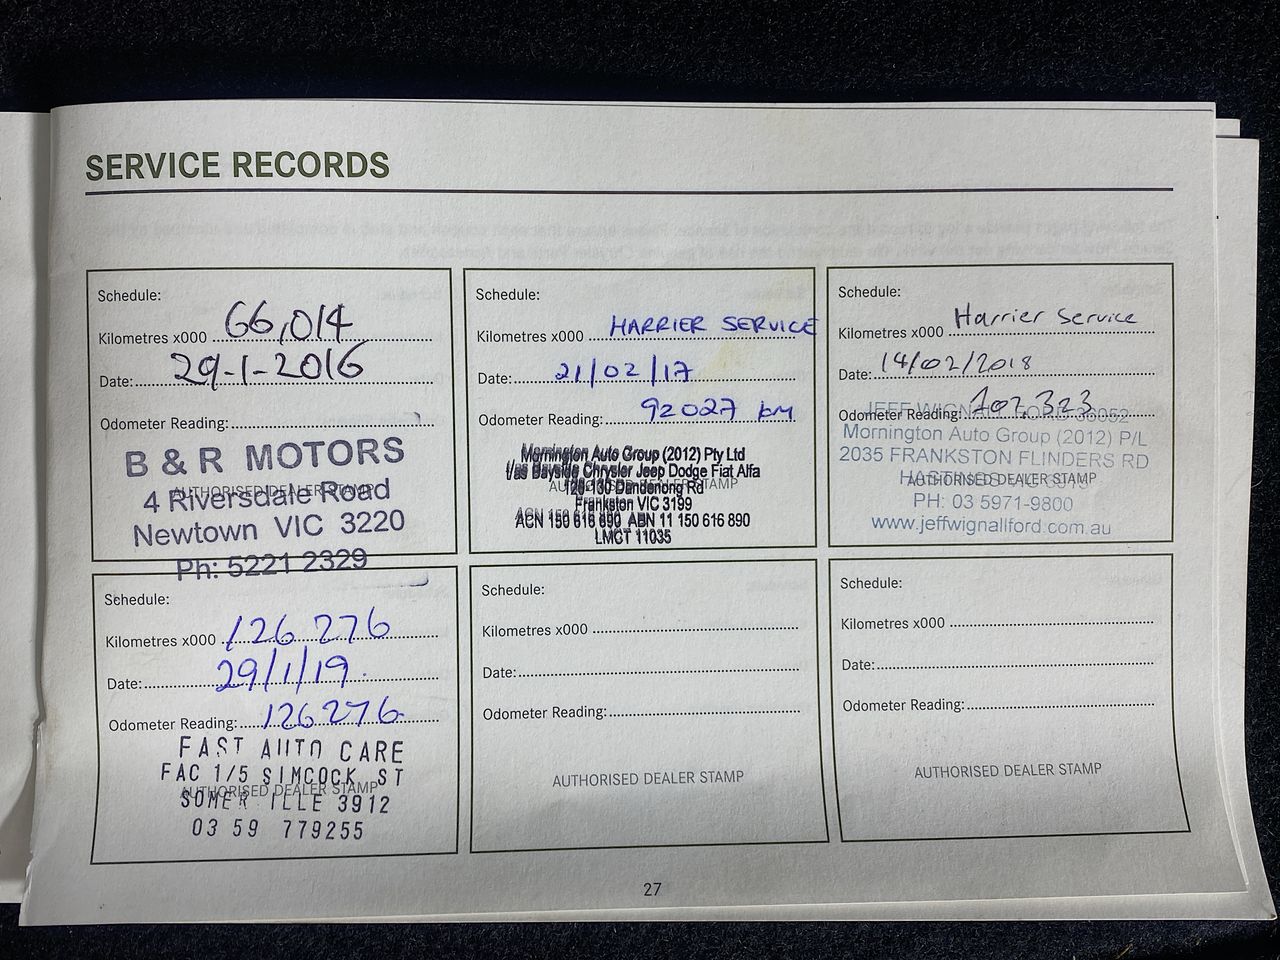 SERVICE RECORDS
Schedule:
Kilometres x000 66,014
Date: 29-1-2016
Odometer Reading:
AUTHORISED DEALER STAMP
B & R MOTORS
4 Riversdale Road
Newtown VIC 3220
Ph: 5221 2329
Schedule:
Kilometres x000 HARRIER SERVICE
Date: 21/02/17
Odometer Reading: 92027 km
AUTHORISED DEALER STAMP
Mornington Auto Group (2012) Pty Ltd
t/as Bayside Chrysler Jeep Dodge Fiat Alfa
128-130 Dandenong Rd
Frankston VIC 3199
ACN 150 616 890 ABN 11 150 616 890
LMCT 11035
Schedule:
Kilometres x000 Harrier Service
Date: 14/02/2018
Odometer Reading: 102,323
JEFF WIGNALL FORD 36052
Mornington Auto Group (2012) P/L
2035 FRANKSTON FLINDERS RD
HASTINGS
AUTHORISED DEALER STAMP
PH: 03 5971-9800
www.jeffwignallford.com.au
Schedule:
Kilometres x000 126 276
Date: 29/1/19.
Odometer Reading: 126276
AUTHORISED DEALER STAMP
FAST AUTO CARE
FAC 1/5 SIMCOCK ST
SOMER ILLE 3912
03 59 779255
Schedule:
Kilometres x000
Date:
Odometer Reading:
AUTHORISED DEALER STAMP
Schedule:
Kilometres x000
Date:
Odometer Reading:
AUTHORISED DEALER STAMP
27